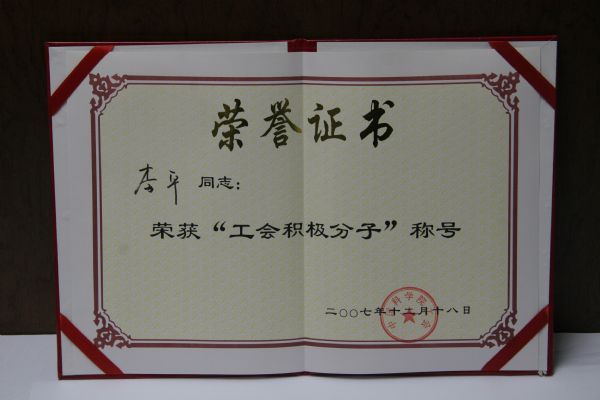 荣誉证书
李平 同志：
荣获“工会积极分子”称号
二〇〇七年十二月十八日